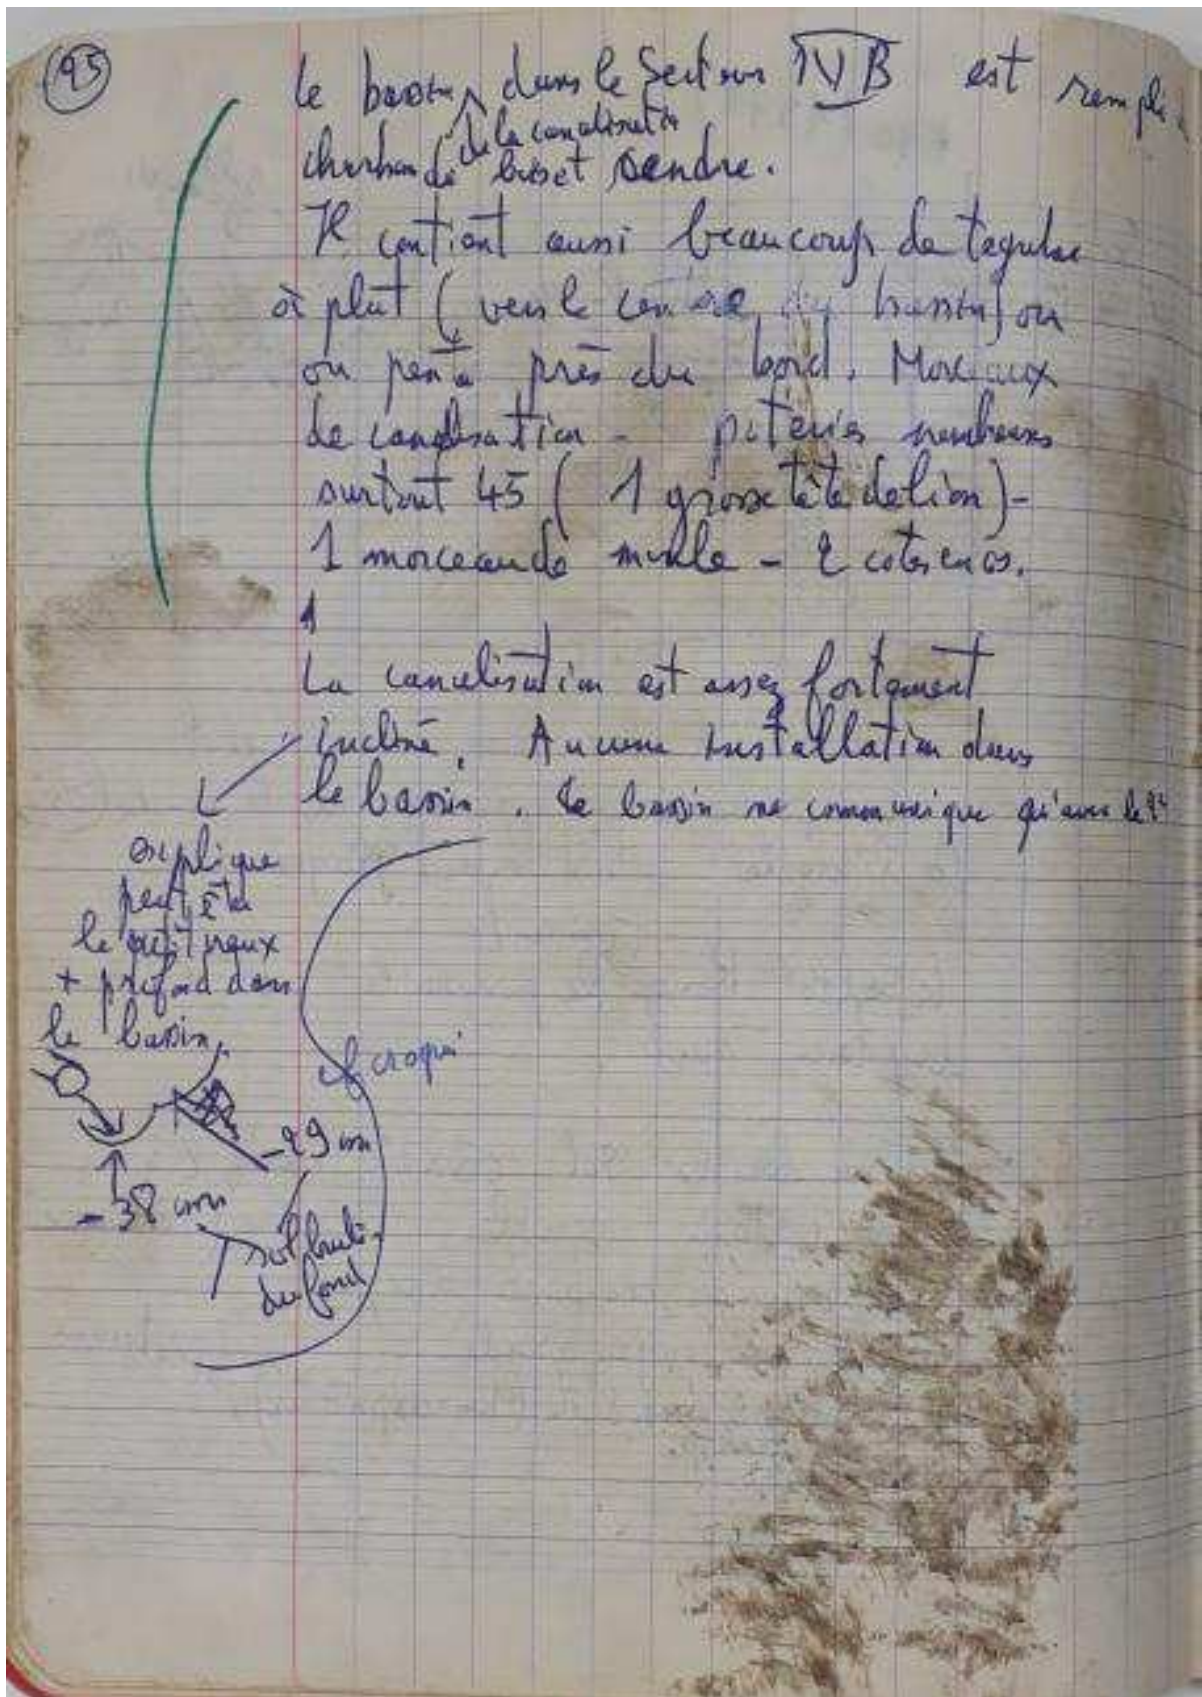 95
Le bassin dans le Secteur IV B est rempli
de la canalisation
charbon de bois et cendre.
Il contient aussi beaucoup de tegulae
à plat (vers le centre du bassin) ou
en pente près du bord. Morceaux
de canalisation - poteries nombreuses
surtout 45 (1 grosse tête de lion) -
1 morceau de meule - 2 cotes en os.
La canalisation est assez fortement
incliné. Aucune installation dans
le bassin. Le bassin ne communique qu'avec le
explique
peut être
le petit creux
+ profond dans
le bassin
cf croquis
- 29 cm
- 38 cm
sol brulé
du fond